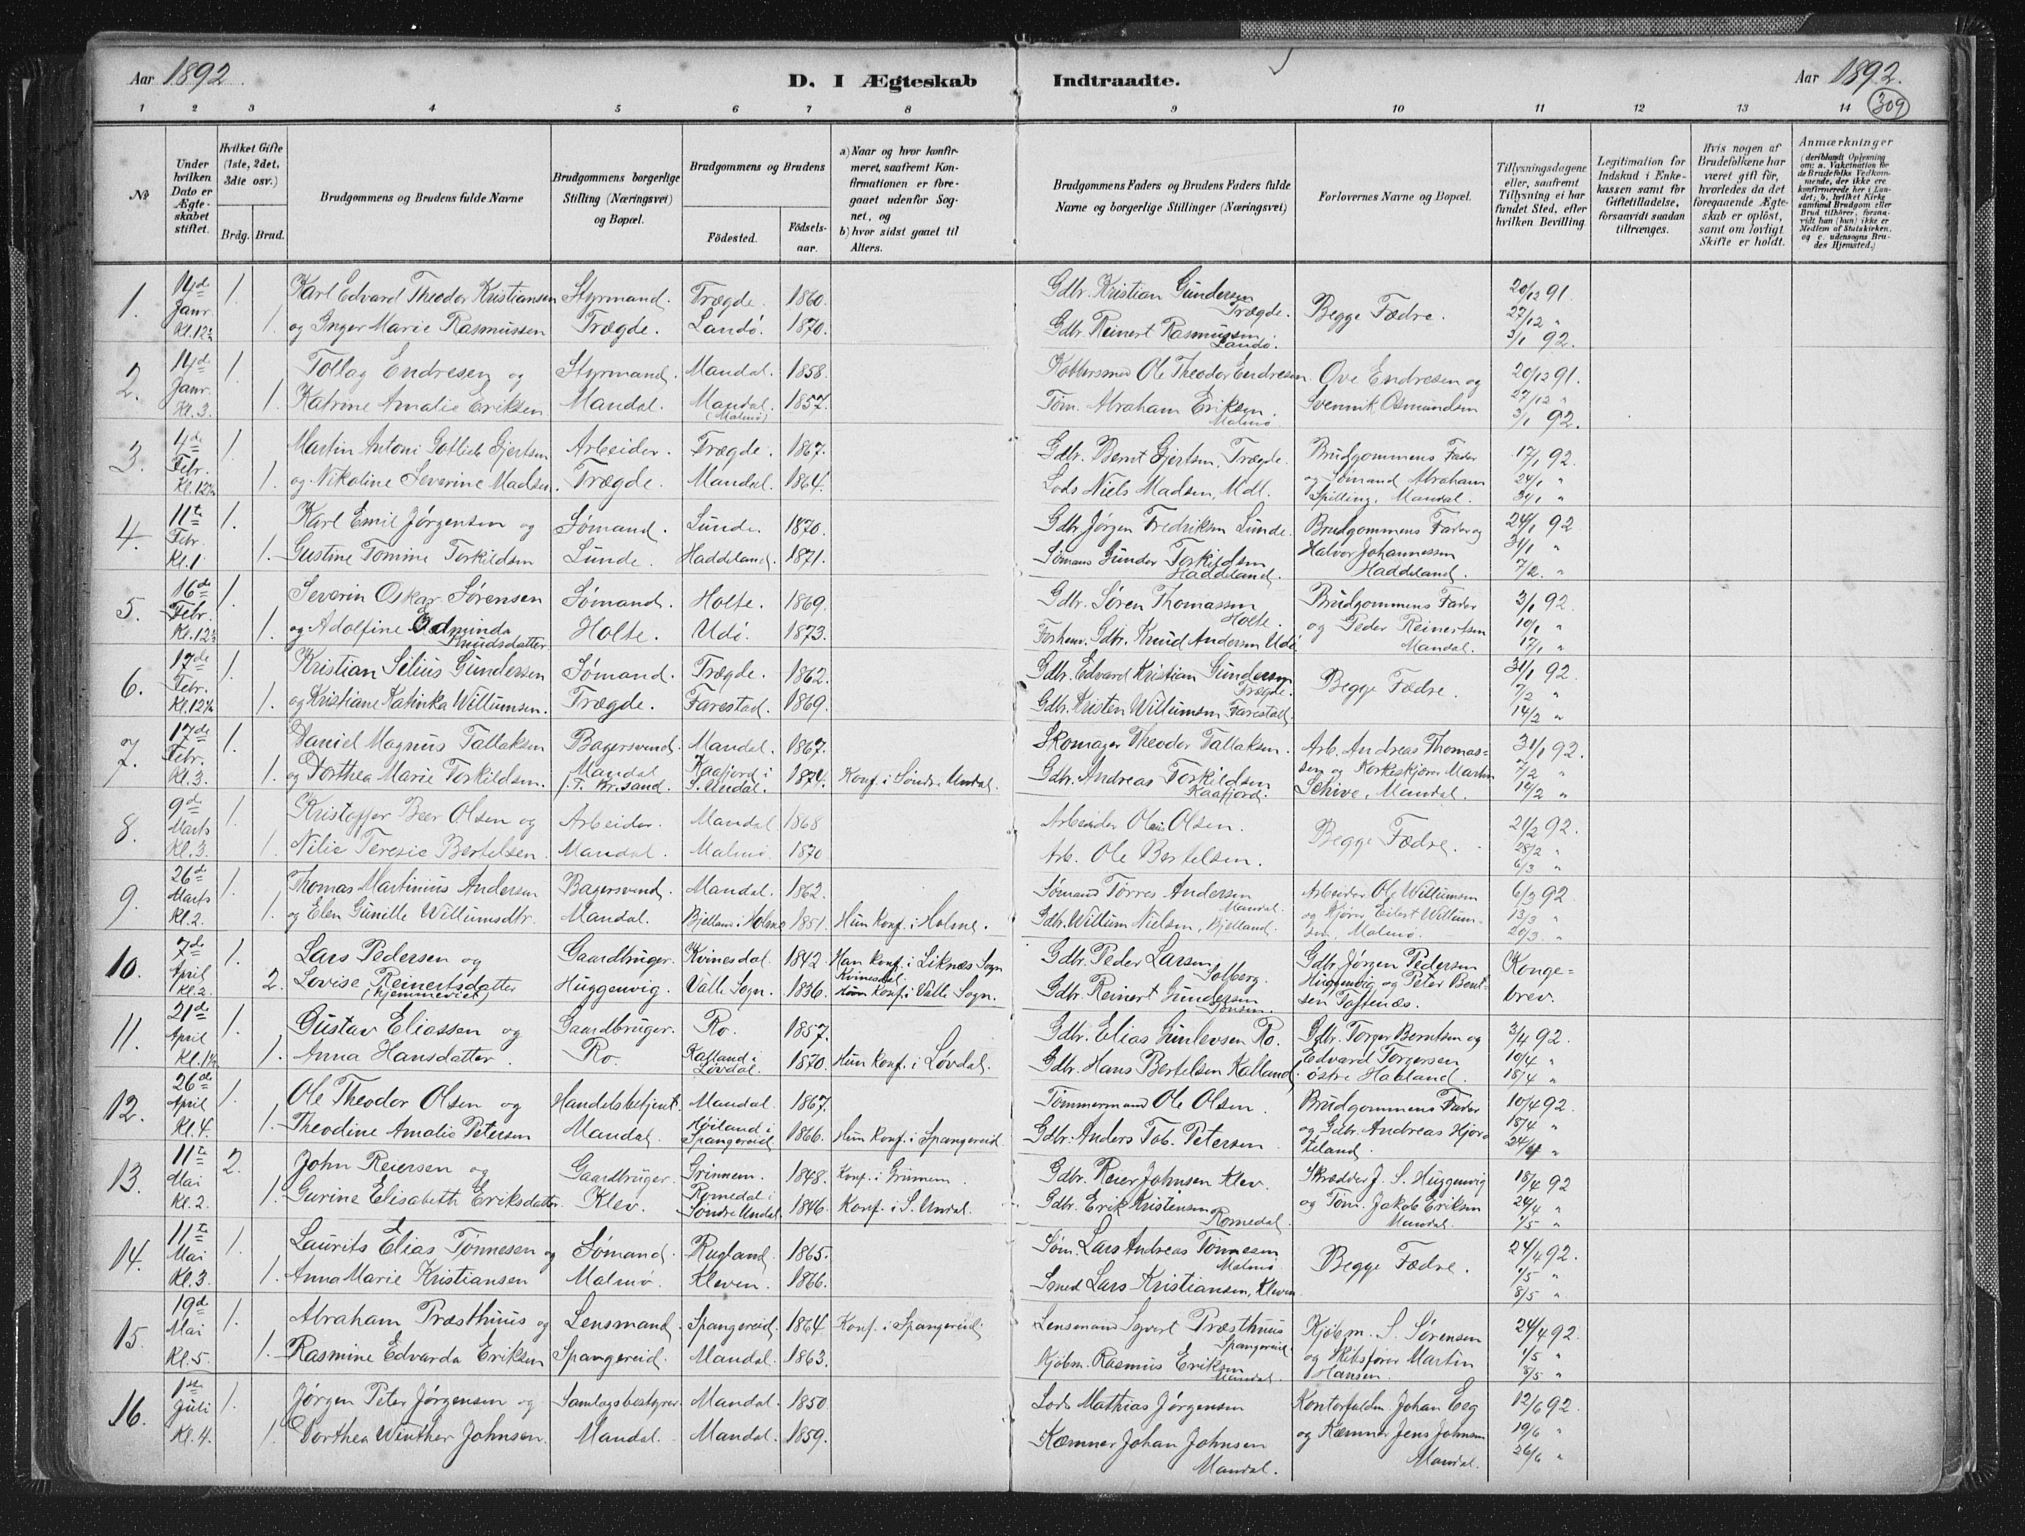 Aar 1892. D. I Ægteskab Indtraadte. Aar 1892.
309
1 2 3 4 5 6 7 8 9 10 11 12 13 14
№
Under hvilken Dato er Ægteskabet stiftet.
Hvilket Gifte (1ste, 2det, 3die osv.)
Brdg. Brud.
Brudgommens og Brudens fulde Navne
Brudgommens borgerlige Stilling (Næringsvei) og Bopæl.
Brudgommens og Brudens
Fødested. Fødselsaar.
a) Naar og hvor konfirmeret, saafremt Konfirmationen er foregaaet udenfor Sognet, og
b) hvor sidst gaaet til Alters.
Brudgommens Faders og Brudens Faders fulde Navne og borgerlige Stillinger (Næringsvei)
Forlovernes Navne og Bopæl.
Tillysningsdagene eller, saafremt Tillysning ei har fundet Sted, efter hvilken Bevilling
Legitimation for Indskud i Enkekassen samt for Giftetilladelse, forsaavidt saadan tiltrænges.
Hvis nogen af Brudefolkene har været gift før, hvorledes da det foregaaende Ægteskab er opløst, samt om lovligt Skifte er holdt.
Anmærkninger
(deriblandt Oplysning om: a. Vakcination for de Brudefolks Vedkommende, der ikke ere konfirmerede her i Landet; b. hvilket Kirkesamfund Brudgom eller Brud tilhører, forsaavidt han (hun) ikke er Medlem af Statskirken, og c. udensogns Brudes Hjemsted.)
1. 14de Janr. Kl. 12½ 1. Karl Edvard Theodor Kristiansen Styrmand. Trægde. 1860. Gdbr. Kristian Gundersen Trægde. Begge Fædre. 20/12 91.
27/12 "
1. og Inger Marie Rasmussen Trægde. Landø. 1870. Gdbr. Reinert Rasmussen Landø. 3/1 92.
2. 14de Janr. Kl. 3. 1. Tollag Endresen og Styrmand. Mandal. 1858. Kobbersmed Ole Theodor Endresen Ove Endresen og 20/12 91.
27/12 "
1. Katrine Amalie Eriksen Mandal. Mandal (Malmø) 1857. Tøm. Abraham Eriksen. Malmø Svennik Osmundsen 3/1 92.
3. 4de Febr. Kl. 12½ 1. Martin Antoni Gotlieb Gjertsen Arbeider. Trægde. 1867. Gdbr. Bernt Gjertsen, Trægde. Brudgommens Fader 17/1 92.
1. og Nikoline Severine Madsen. Trægde. Mandal. 1864. Lods Niels Madsen, Mdl. og Sømand Abraham Spilling, Mandal. 24/1 "
31/1 "
4. 11te Febr. Kl. 1 1. Karl Emil Jørgensen og Sømand. Lunde. 1870. Gdbr. Jørgen Fredriksen Lunde. Brudgommens Fader og 24/1 92
31/1 "
1. Gustine Tomine Torkildsen Lunde. Haddeland. 1871. Sømand Gunder Torkildsen Haddeland. Halvor Johannessen Haddeland. 7/2. "
5. 16de Febr. Kl. 12½ 1. Severin Oskar Sørensen Sømand. Holte. 1869. Gdbr. Søren Thomassen Holte. Brudgommens Fader 3/1 92.
10/1 "
1. og Adolfine Edminda Knudsdatter Holte. Udø. 1873. Forhenv. Gdbr. Knud Andersen Udø og Peder Reinertsen Mandal. 17/1 "
6. 17de Febr. Kl. 12½ 1. Kristian Silius Gundersen Sømand. Trægde. 1862. Gdbr. Edvard Kristian Gundersen Trægde. Begge Fædre. 31/1 92.
7/2 "
1. og Kristiane Katinka Willumsen. Trægde. Farestad. 1869. Gdbr. Kristen Willumsen Farestad. 14/2 "
7. 17de Febr. Kl. 3. 1. Daniel Magnus Tallaksen Bagersvend. Mandal. 1867. Skomager Theodor Tallaksen. Arb. Andreas Thomas- 31/1 92.
7/2 "
1. og Dorthea Marie Torkildsen. Mandal f. T. Kr.sand. Kaafjord i S. Undal. 1874. Konf. i Søndre Undal. Gdbr. Andreas Torkildsen Kaafjord. sen og Korkeskjærer Martin Schive, Mandal. 14/2 "
8. 9de Marts Kl. 3. 1. Kristoffer Beer Olsen og Arbeider. Mandal 1868 Arbeider Olaus Olsen. Begge Fædre. 21/2 92.
28/2 "
1. Nilie Teresie Bertelsen. Mandal. Malmø. 1870 Arb. Ole Bertelsen. 6/3 "
9. 26de Marts Kl. 2. 1. Thomas Martinius Andersen Bagersvend. Mandal. 1862. Sømand Tørres Andersen Mandal. Arbeider Ole Willumsen 6/3 92
13/3 "
1. og Elen Gunille Willumsdtr. Mandal. Bjelland i Holme 1851. Hun konf. i Holme. Gdbr. Willum Nielsen, Bjelland. og Kjører Eilert Willumsen, Malmø. 20/3 "
10. 7de April Kl. 2. 1. Lars Pedersen og Gaardbruger. Kvinesdal. 1842. Han konf. i Liknæs Sogn Kvinesdal. Gdbr. Peder Larsen Solberg. Gdbr. Jørgen Pedersen Konge-
2. Lovise Reinertsdatter (hjemmeviet) Huggenvig. Valle Sogn. 1836. Hun konf. i Valle Sogn. Gdbr. Reinert Gundersen Huggenvig og Peter Bentsen Toftenæs. brev.
11. 21de April Kl. 1½ 1. Gustav Eliassen og Gaardbruger. Ro. 1857. Gdbr. Elias Gunlevsen Ro. Gdbr. Torger Berntsen og 3/4 92.
10/4 "
1. Anna Hansdatter. Ro. Kalland i Løvdal. 1870. Hun konf. i Løvdal. Gdbr. Hans Bertelsen Kalland. Edvard Torgersen østre Haaland. 18/4 "
12. 26de April Kl. 4. 1. Ole Theodor Olsen og Handelsbetjent. Mandal. 1867. Tømmermand Ole Olsen. Brudgommens Fader 10/4 92.
18/4 "
1. Theodine Amalie Petersen Mandal. Høiland i Spangereid. 1866. Hun konf. i Spangereid. Gdbr. Anders Tob. Petersen. og Gdbr. Andreas Hjorteland. 24/4 "
13. 11te Mai Kl. 2. 2. John Reiersen og Gaardbruger. Grinnem. 1848. Konf. i Grinnem. Gdbr. Reier Johnsen Klev. Skrædder J. S. Huggenvig 18/4 92
24/4 "
1. Gurine Elisabeth Eriksdatter Klev. Romedal i Søndre Undal. 1846. Konf. i S. Undal. Gdbr. Erik Kristensen Romedal. og Tøm. Jakob Eriksen Mandal. 1/5 "
14. 11te Mai Kl. 3. 1. Laurits Elias Tønnesen og Sømand. Rugland. 1865. Søm. Lars Andreas Tønnesen Malmø Begge Fædre. 24/4 92.
1/5 "
1. Anna Marie Kristiansen Malmø. Kleven. 1866. Smed Lars Kristiansen, Kleven 8/5 "
15. 19de Mai Kl. 5. 1. Abraham Præsthuus og Lensmand. Spangereid. 1864. Konf. i Spangereid. Lensmand Syvert Præsthuus Spangereid. Kjøbm. S. Sørensen 24/4 92.
1/5 "
1. Rasmine Edvarda Eriksen Spangereid. Mandal. 1863. Kjøbm. Rasmus Eriksen Mandal. og Skibsfører Martin Hansen. 8/5 "
16. 1ste Juli Kl. 4. 1. Jørgen Peter Jørgensen og Samlagsbestyrer Mandal. 1850. Lods Mathias Jørgensen Kontorfuldm. Johan Eeg 12/6 92.
19/6 "
1. Dorthea Winther Johnsen. Mandal. Mandal. 1859. Kæmner Johan Johnsen Mandal. og Kæmner Jens Johnsen Mandal. 26/6 "